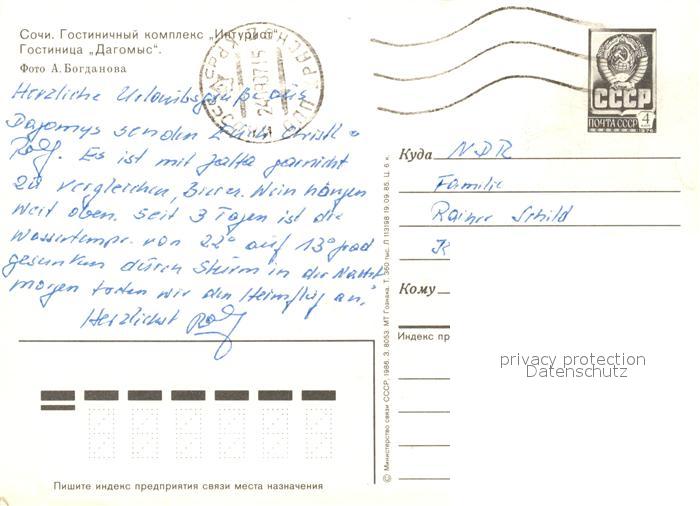 Сочи. Гостиничный комплекс „Интурист“
Гостиница „Дагомыс“.
Фото А. Богданова
Herzliche Urlaubsgrüße aus
Dagomys senden Euch Christl u.
Rolf. Es ist mit Jalta garnicht
zu vergleichen, Wein hängen
weit oben. Seit 3 Tagen ist die
Wassertemp. von 22° auf 13° grad
gesunken durch Sturm in der Nacht.
morgen treten wir den Heimflug an.
Herzlichst Rolf
СССР
ПОЧТА СССР 4
Куда NDR
Familie
Rainer Schild
Кому
Индекс пр
privacy protection
Datenschutz
Пишите индекс предприятия связи места назначения
© Министерство связи СССР, 1986. З. 8053. МТ Гознака. Т. 360 тыс. Л 113198 19.09.85. Ц. 6 к.